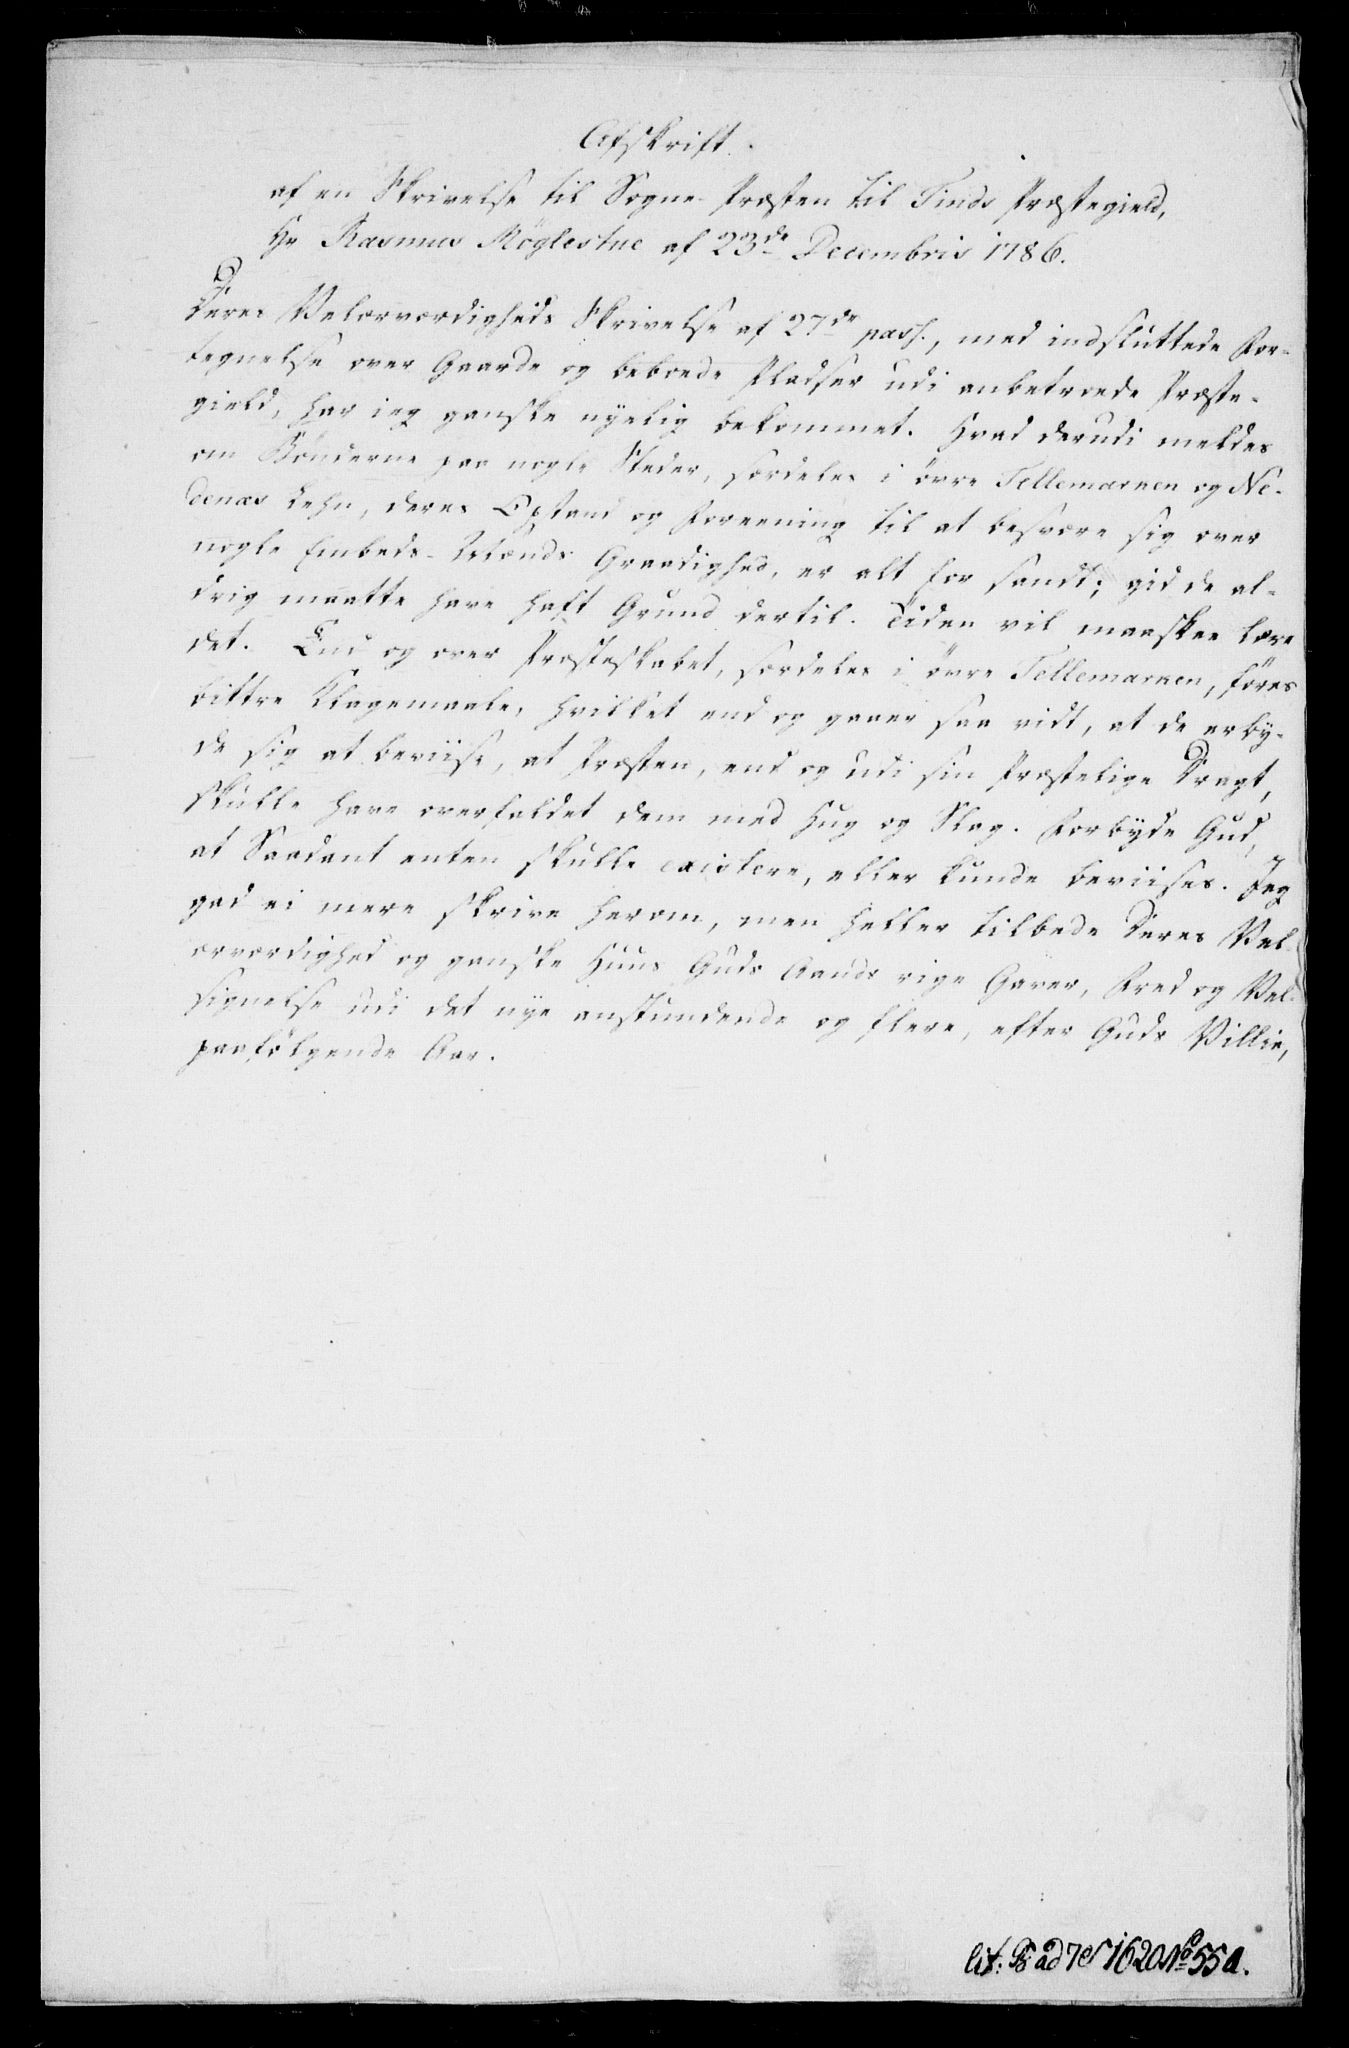 Afskrift.
af en Skrivelse til Sogne-Præsten til Tinds Præstegield,
Hr Rasmus Möglestue af 23de Decembris 1786.
Deres Velærværdigheds Skrivelse af 27de pass., med indsluttede For-
tegnelse over Gaarde og beboede Pladser udi anbetroede Præste-
gield, har ieg ganske nyelig bekommet. Hvad derudi meldes
om Bönderne paa nogle Steder, særdeles i övre Tellemarken og Ne-
denæs Lehn, deres Opstand og Foreening til at besvære sig over
nogle Embeds-Mænds Graadighed, er alt for sandt; gid de al-
drig maatte have haft Grund dertil. Tiden vil maaskee lære
det. End og over Præsteskabet, særdeles i övre Tellemarken, föres
bittre Klagemaale, hvilket end og gaaer saa vidt, at de erby-
de sig at beviise, at Præsten, end og udi sin Præstelige Dragt,
skulle have overfaldet dem med Hug og Slag. Forbyde Gud,
at Saadant enten skulle existere, eller kunde beviises. Jeg
gad ei mere skrive herom, men heller tilbede Deres Vel-
ærværdighed og ganske Huus Guds Aands rige Gaver, Fred og Vel-
signelse udi det nye anstundende og flere, efter Guds Villie,
paafölgende Aar.
lit: B ad 1620 No 55 a.